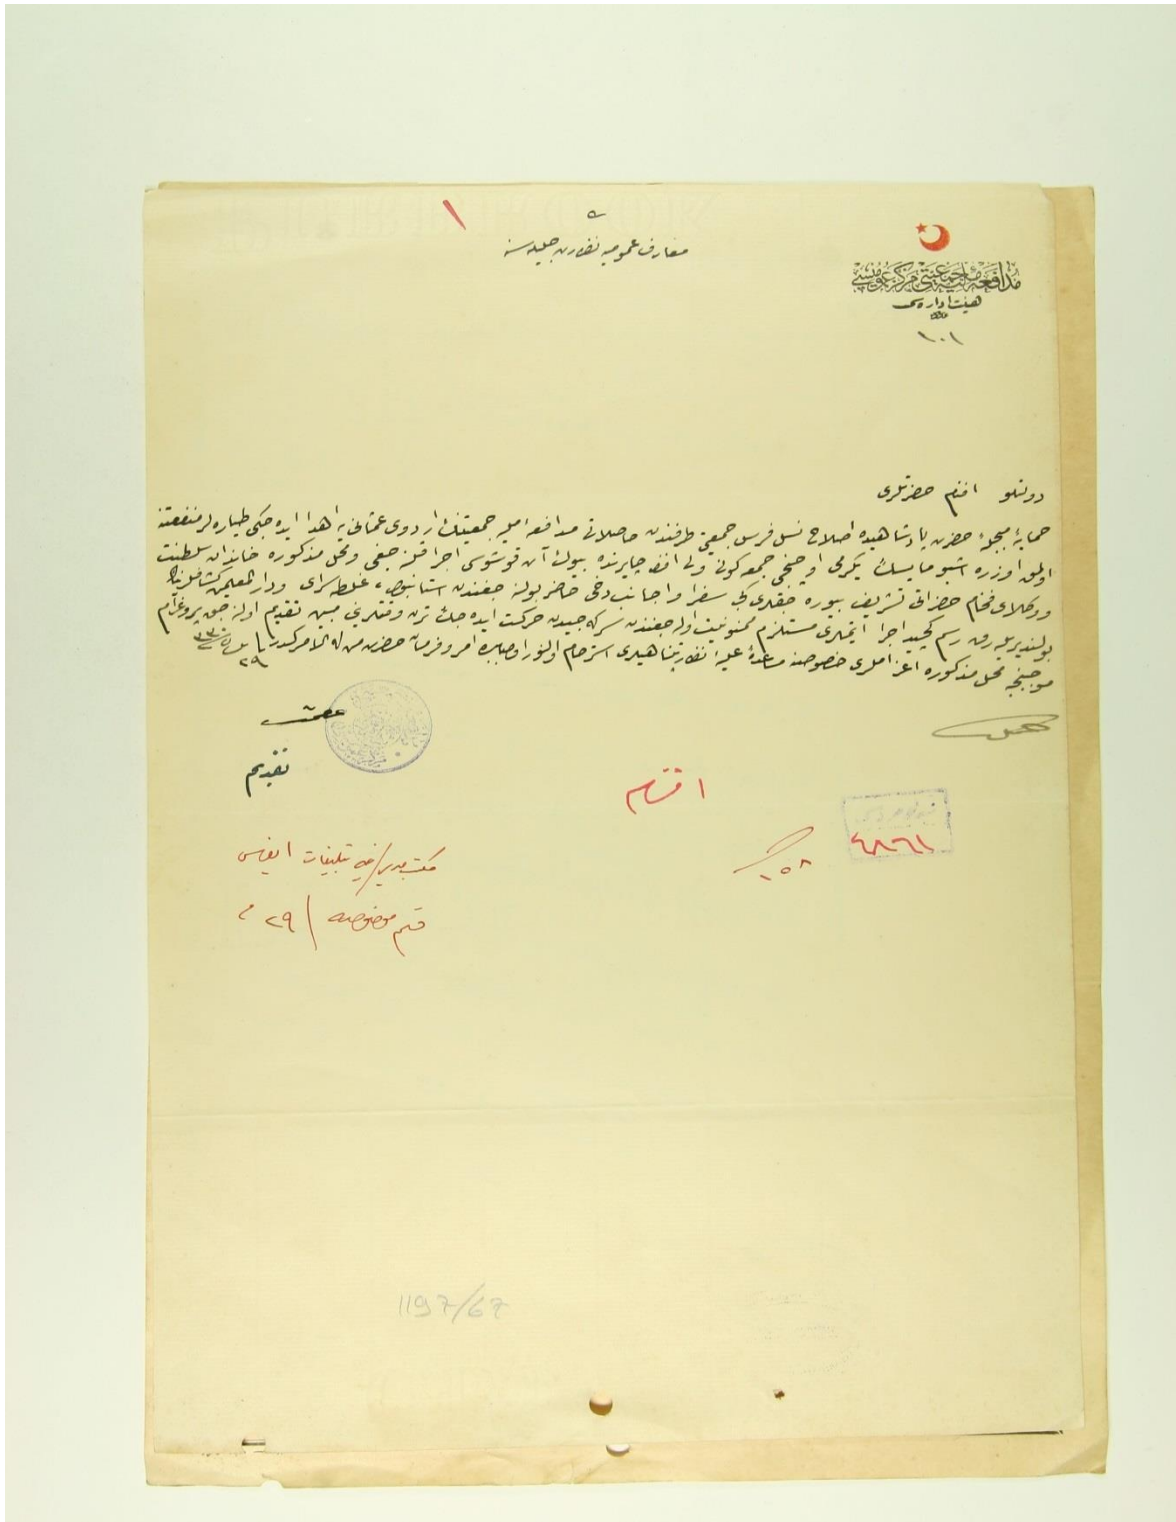 ١
معارف عموميه نظارت جليله سنه
مدافعهٔ مليه جمعيتى مركز عموميسى
هيئت اداره سى
١٠١
دولتلو افندم حضرتلرى
حمايهٔ مبجلهٔ حضرت پادشاهيده اصلاح نسل فرس جمعيتى طرفندن حاصلاتى مدافعهٔ مليه جمعيتنك اردوى عثمانى يه اهدا ايده جكى طياره لر منفعتنه
اولمق اوزره اشبو مايسك يكرمى اوچنجى جمعه كونى ولى افندى چايرنده بيوك آت قوشوسى اجرا قلنه جغى ومحل مذكوره خاندان سلطنت
ووكلاى فخام حضراتى تشريف بيوره جقلرى كبى سفرا واجانب دخى حاضر بولنه جغندن استانبول، غلطه سراى ودار المعلمين كشافلرينك
بولنديريله رق رسم كچيد اجرا ايتملرى مستلزم ممنونيت اوله جغندن سركه جيدن حركت ايده جك ترن وقتلرينى مبين تقديم اولنه جق پروغرام
موجبنجه محل مذكوره اعزاملرى خصوصنه مساعدهٔ عليهٔ نظارتپناهيلرى استرحام اولنور اولبابده امر وفرمان حضرت من له الامر كدر
٢٩
٣٣٠
عصمت
تقديم
٤٨٠٦١
١٥٨
مكتب تبليغات
قلم مخصوصه ٢٩
1197/67